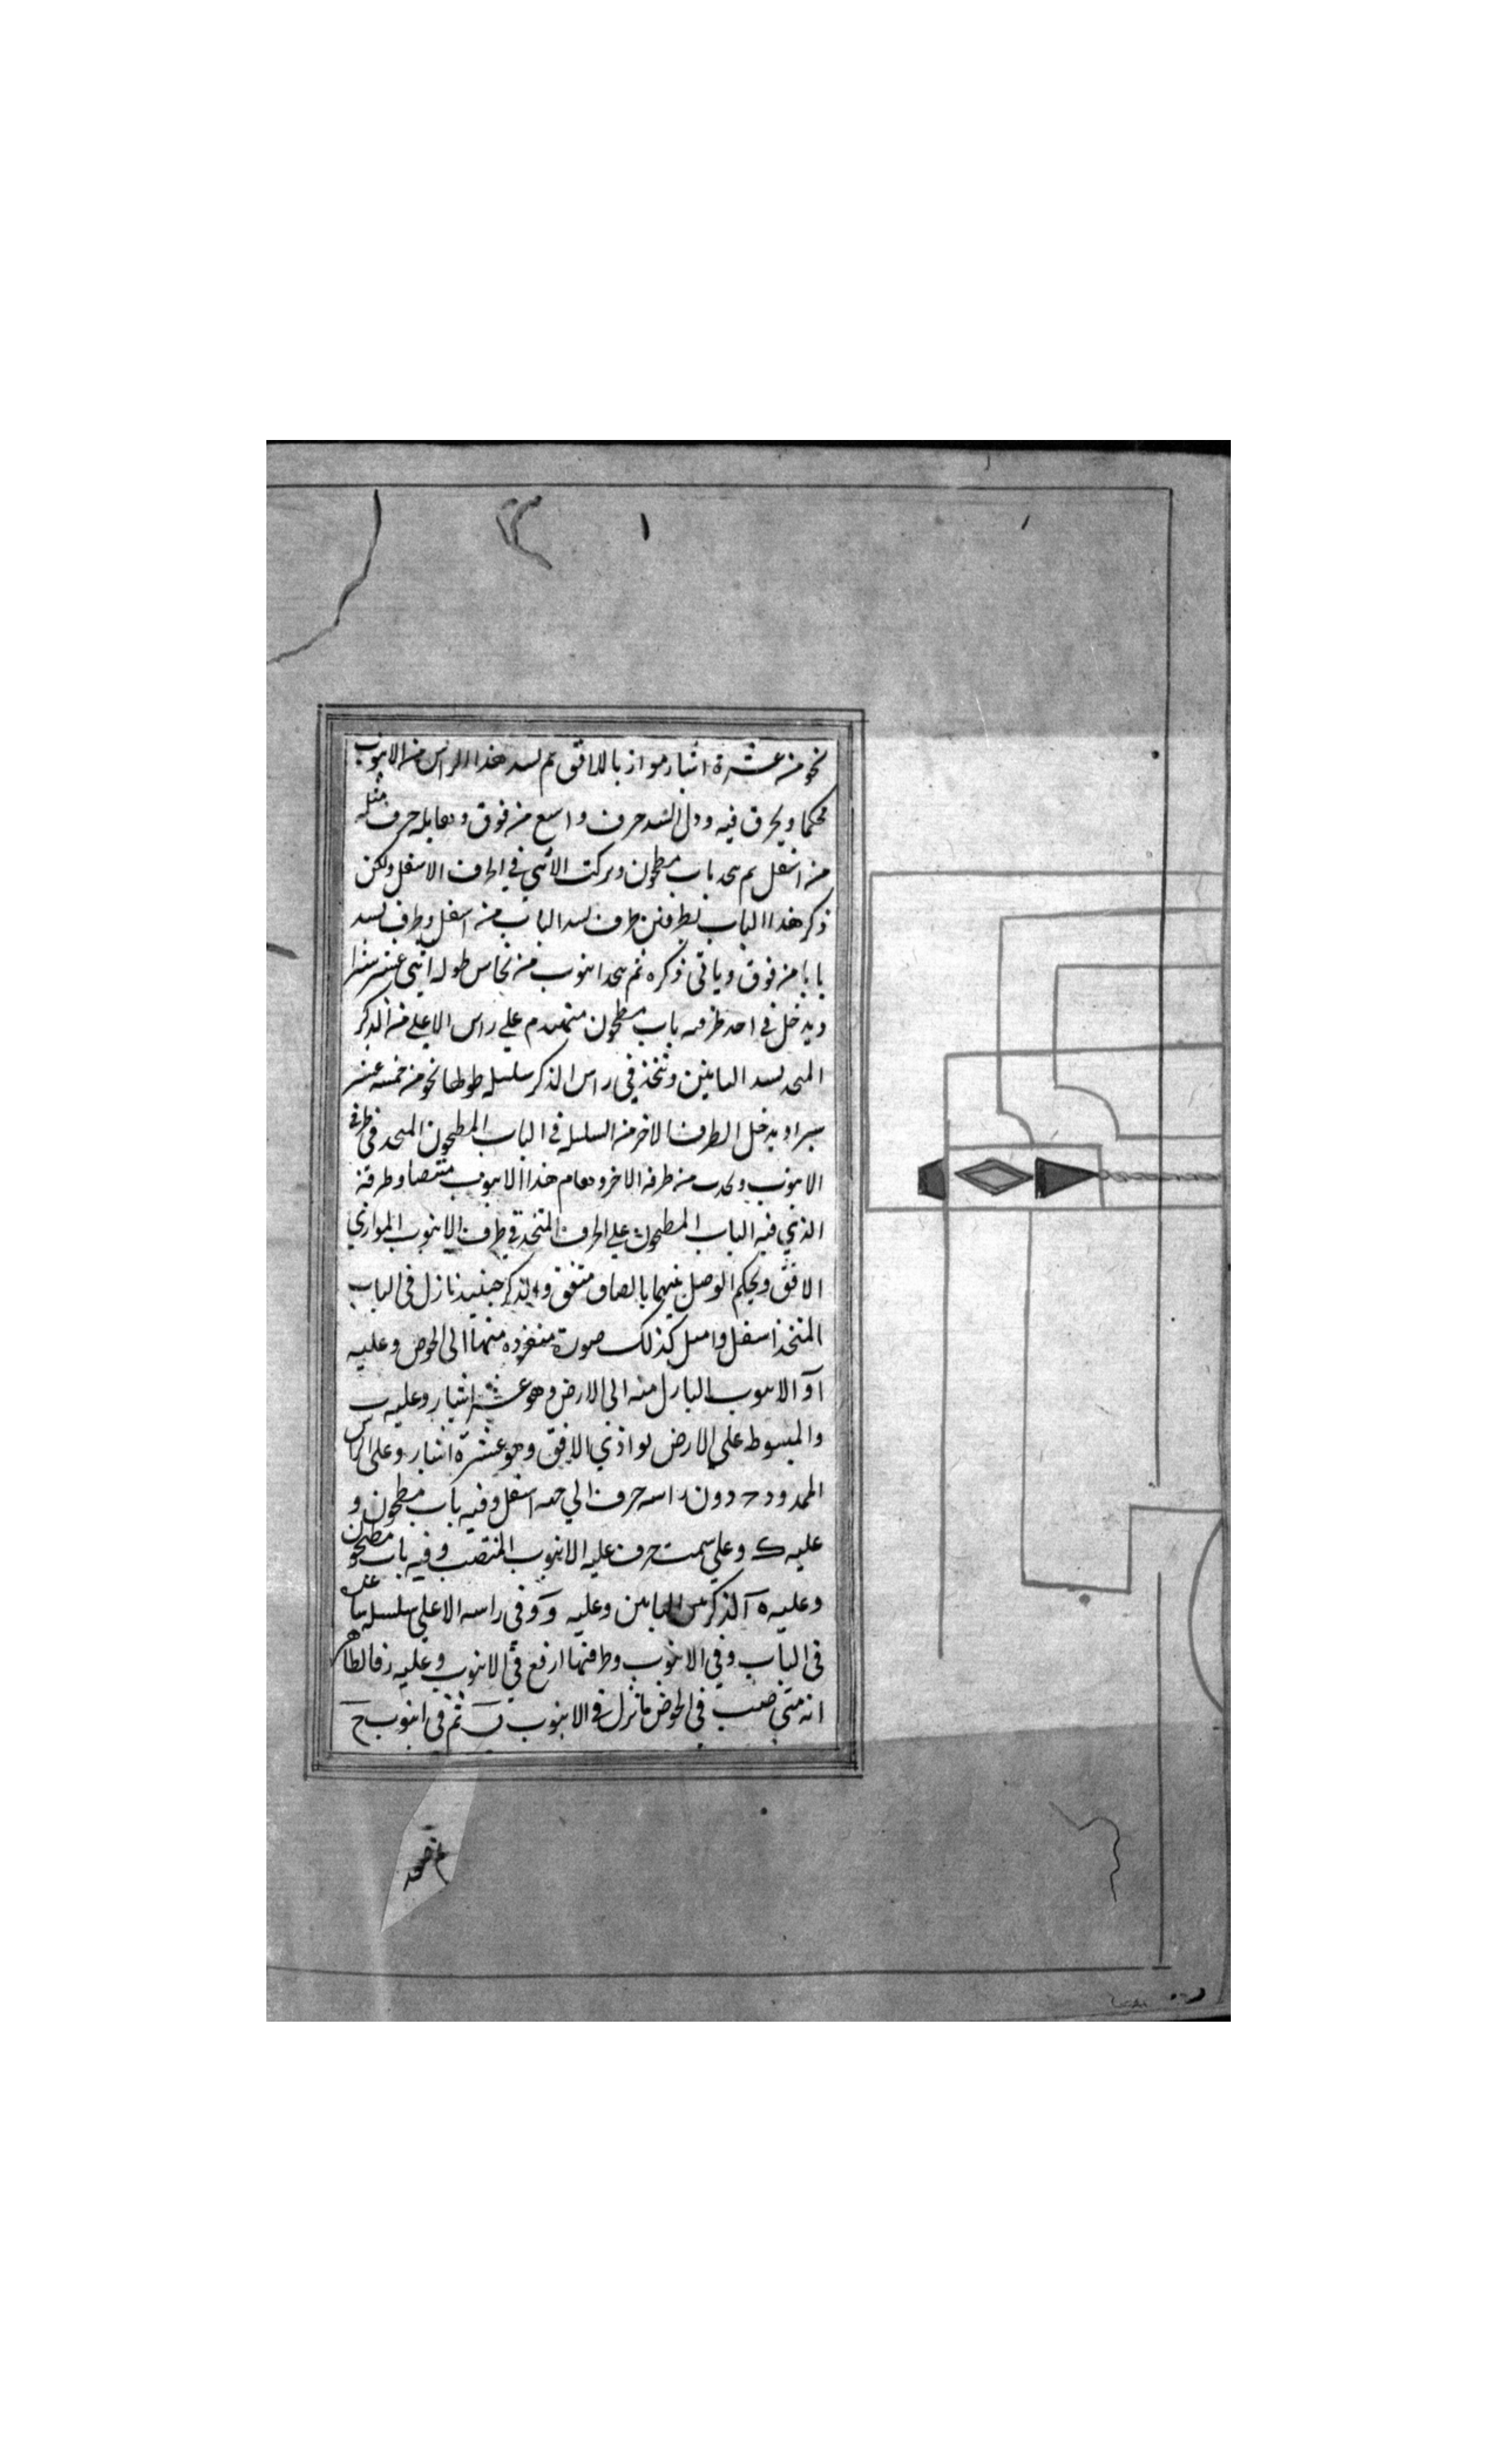 نحو من عشرة اشبار مواز بالافق ثم يسد هذا الراس من الانبوب
محكما ويخرق فيه ودل السد حرف واسع من فوق ومقابله حرف مثله
من اسفل ثم يتخذ باب مطحون ويركب الانثي في الحرف الاسفل ولكن
ذكر هذا الباب بطرفين طرف يسد الباب من اسفل وطرف يسد
بابا من فوق وياتي ذكره ثم يتخذ انبوب من نحاس طوله اثني عشر شبرا
ويدخل في احد طرفيه باب مطحون علي راس الاعلي من الذكر
المتخذ لسد البابين وتتخذ في راس الذكر سلسله طولها نحو من خمسه عشر
شبرا ويدخل الطرف الاخر من السلسله في الباب المطحون المتخذ في طرف
الانبوب ويجذب من طرفه الاخر ويقام هذا الانبوب منتصبا وطرفه
الذي فيه الباب المطحون علي الحرف المتخذ في طرف الانبوب الموازي
الافق ويحكم الوصل بينهما بالصاق متفق والذكر حينيذ نازل في الباب
المتخذ اسفل وامثل كذلك صورة منفرده منها الي الحوض وعليه
آ والانبوب النازل منه الي الارض وهو عشر اشبار وعليه ب
والمبسوط علي الارض يواذي الافق وهو عشرة اشبار وعلي الراس
الممدود ح دون راسه حرف الي جهه اسفل وفيه باب مطحون و
عليه ك وعلي سمت حرف عليه الانبوب المنتصب وفيه باب مطحون
وعليه ه آلذكر بين البابين وعليه و وفي راسه الاعلي سلسله
في الباب وفي الانبوب وطرفها ارفع في الانبوب وعليه ز فالظاهر
انه متي صب في الحوض ما نزل في الانبوب ب ثم في انبوب ح